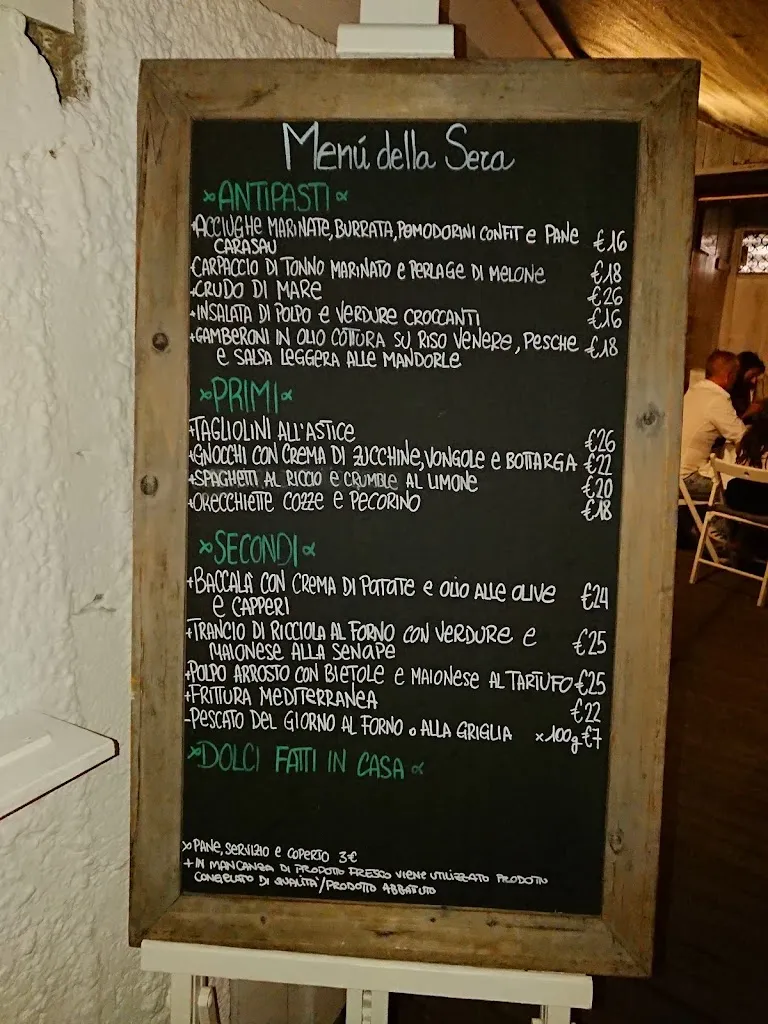 Menú della Sera
ANTIPASTI
+ACCIUGHE MARINATE, BURRATA, POMODORINI CONFIT e PANE €16
CARASAU
CARPACCIO DI TONNO MARINATO e PERLAGE DI MELONE €18
+CRUDO DI MARE €26
+INSALATA DI POLPO e VERDURE CROCCANTI €16
+GAMBERONI IN OLIO COTTURA SU RISO VENERE, PESCHE €18
e SALSA LEGGERA ALLE MANDORLE
PRIMI
+TAGLIOLINI ALL'ASTICE €26
+GNOCCHI CON CREMA DI ZUCCHINE, VONGOLE e BOTTARGA €22
+SPAGHETTI AL RICCIO e CRUMBLE AL LIMONE €20
+ORECCHIETTE COZZE e PECORINO €18
SECONDI
+BACCALÀ CON CREMA DI PATATE e OLIO ALLE OLIVE €24
e CAPPERI
+TRANCIO DI RICCIOLA AL FORNO CON VERDURE e €25
MAIONESE ALLA SENAPE
+POLPO ARROSTO CON BIETOLE e MAIONESE AL TARTUFO €25
+FRITTURA MEDITERRANEA €22
-PESCATO DEL GIORNO AL FORNO o ALLA GRIGLIA x100g €7
DOLCI FATTI IN CASA
PANE, SERVIZIO e COPERTO 3€
+ IN MANCANZA DI PRODOTTO FRESCO VIENE UTILIZZATO PRODOTTO
CONGELATO DI QUALITÀ/PRODOTTO ABBATTUTO